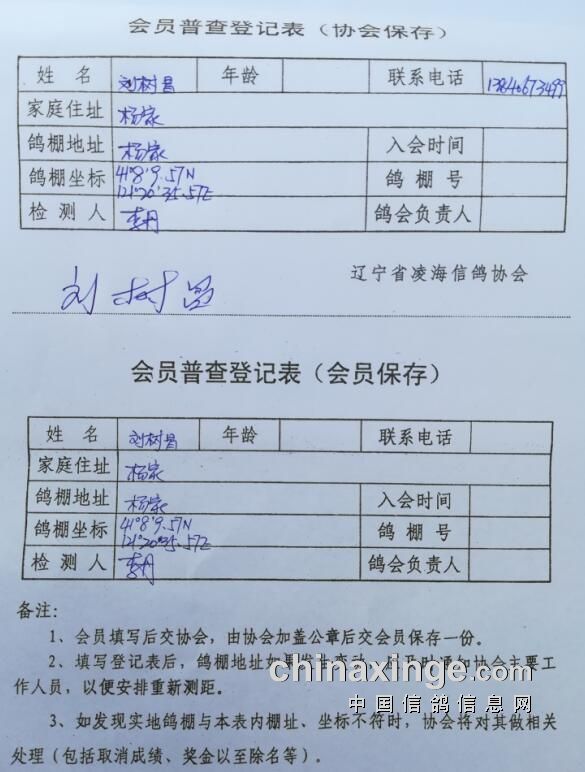 会员普查登记表（协会保存）
姓 名 刘树昌 年龄 联系电话
家庭住址 杨家
鸽棚地址 杨家 入会时间
鸽棚坐标 41°8'9.57N 121°20'35.57E 鸽 棚 号
检 测 人 鸽会负责人
辽宁省凌海信鸽协会
刘树昌
会员普查登记表（会员保存）
姓 名 刘树昌 年龄 联系电话
家庭住址 杨家
鸽棚地址 杨家 入会时间
鸽棚坐标 41°8'9.57N 121°20'35.57E 鸽 棚 号
检 测 人 鸽会负责人
备注：
1、会员填写后交协会，由协会加盖公章后交会员保存一份。
2、填写登记表后，鸽棚地址如 协会主要工
作人员，以便安排重新测距。
chinaxinge.com
中国信鸽信息网
3、如发现实地鸽棚与本表内棚址、坐标不符时，协会将对其做相关
处理（包括取消成绩、奖金以至除名等）。